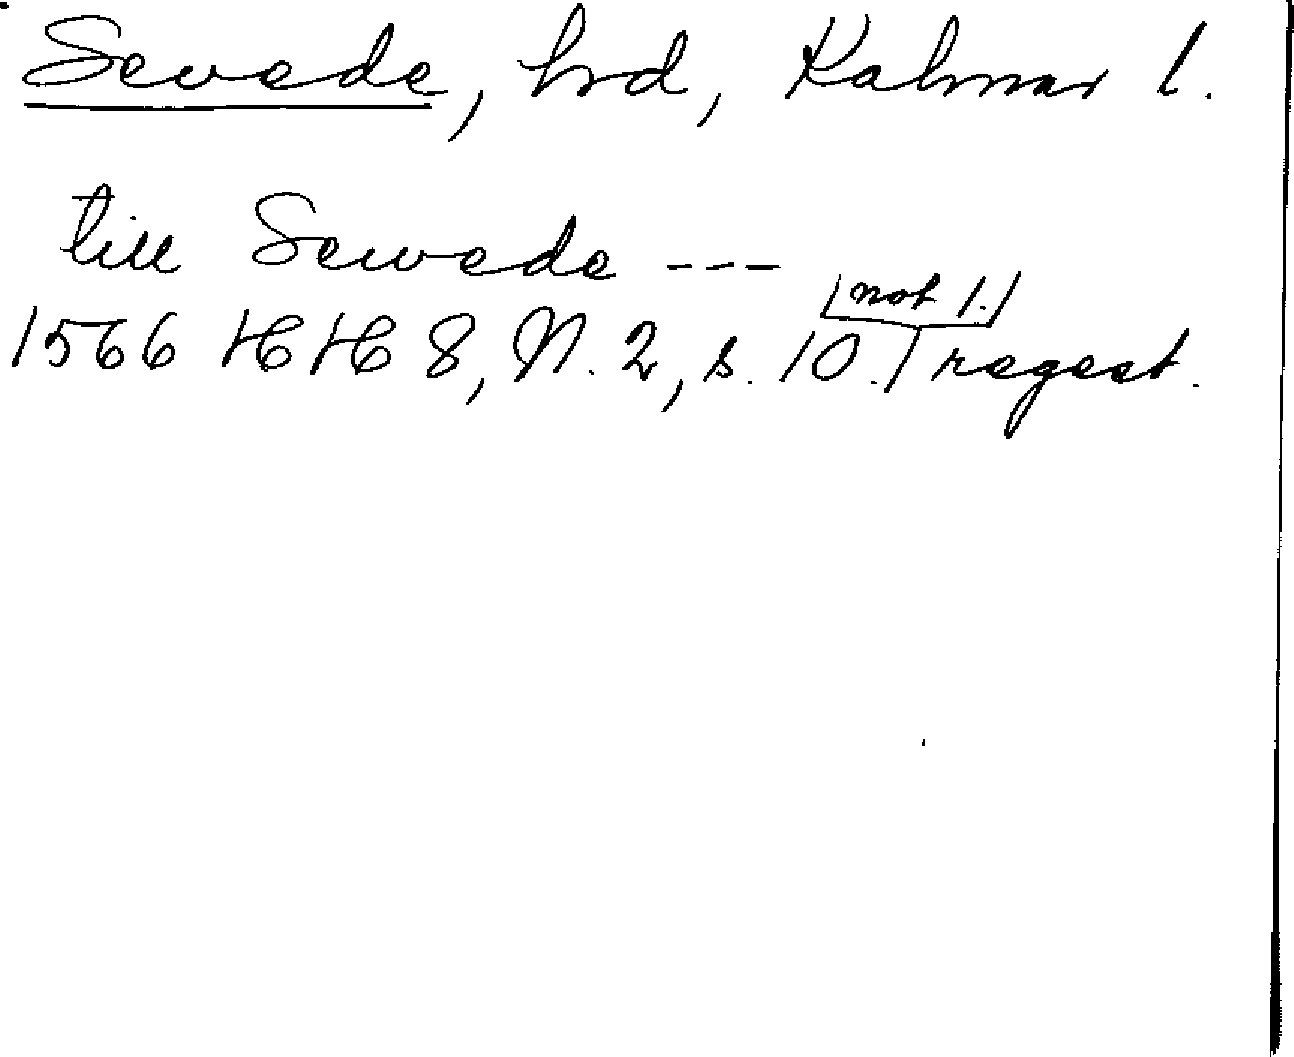 Sevede, hrd, Kalmar l.
till Sewede ---
1566 HH 8, N. 2, s. 10. not 1. regest.